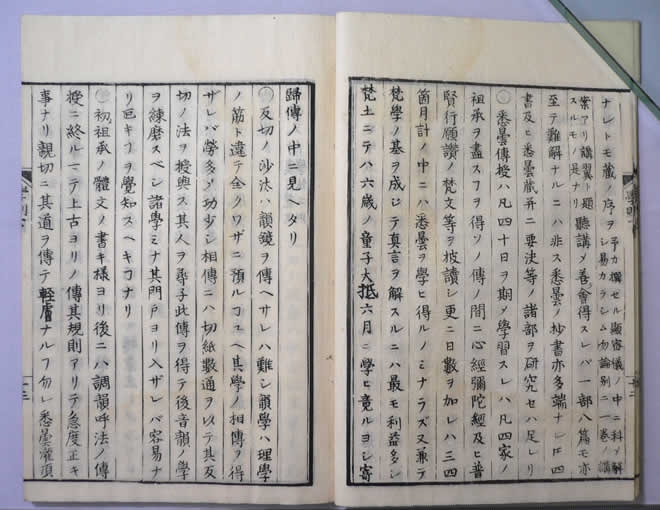 ナレトモ藏ノ序ヲ
予カ撰セル顯密儀ノ中ニ科メ解
シ易カラシム勿論別ニ一卷ノ講
案アリ講翼ト題
スルモノ是ナリ
聽講メ善ク會得スレバ一部八篇モ亦
至テ難解ナルニハ非ス悉曇ノ抄書亦多端ナレ𪜈四
書及ヒ悉曇藏并ニ要決等ノ諸部ヲ研究セハ足レリ
〇悉曇傳授ハ凡四十日ヲ期メ學習スレハ凡四家ノ
祖承ヲ盡スヿヲ得ソノ傳ノ間ニ心經彌陀經及ヒ普
賢行願讚ノ梵文等ヲ披讀シ更ニ日數ヲ加レハ三四
箇月計ノ中ニハ悉曇ヲ學ヒ得ルノミナラズ又兼テ
梵學ノ基ヲ成ジテ真言ヲ解スルニハ最モ利益多シ
梵土ニテハ六歳ノ童子大抵六月ニ學ヒ竟ルヨシ寄
歸傳ノ中ニ見ヘタリ
〇反切ノ沙汰ハ韻鏡ヲ傳ヘサレハ難シ韻學ハ理學
ノ筋ト違テ全クワザニ預ルヿユヘ其學ノ相傳ヲ得
ザレバ勞多メ功少シ相傳ニハ切紙數通ヲ以テ其反
切ノ法ヲ授與ス其人ヲ尋子此傳ヲ得テ後音韻ノ學
ヲ練磨スベシ諸學ミナ其門戸ヨリ入ザレバ容易ナ
リ叵キヿヲ覺知スヘキヿナリ
〇初祖承ノ體文ノ書キ樣ヨリ後ニハ調韻呼法ノ傳
授ニ終ルマテ上古ヨリノ傳其規則アリテ急度正キ
事ナリ親切ニ其道ヲ傳テ輕膚ナルヿ勿レ悉曇灌頂